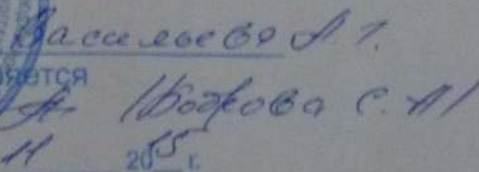 Васильева А. Г.
яется
/Божкова С. А/
11 2015 г.